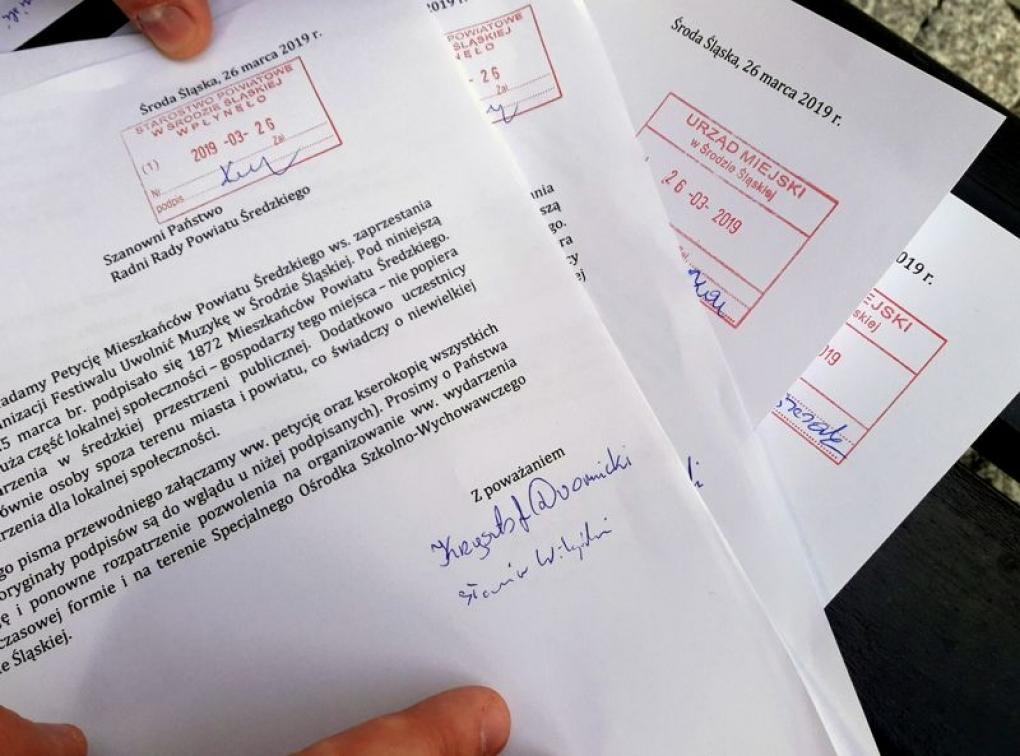 Środa Śląska, 26 marca 2019 r.
STAROSTWO POWIATOWE
W ŚRODZIE ŚLĄSKIEJ
WPŁYNĘŁO
(1) 2019 -03- 26
Nr Zał
podpis
Szanowni Państwo
Radni Rady Powiatu Średzkiego
adamy Petycję Mieszkańców Powiatu Średzkiego ws. zaprzestania
nizacji Festiwalu Uwolnić Muzykę w Środzie Śląskiej. Pod niniejszą
5 marca br. podpisało się 1872 Mieszkańców Powiatu Średzkiego.
uża część lokalnej społeczności – gospodarzy tego miejsca – nie popiera
arzenia w średzkiej przestrzeni publicznej. Dodatkowo uczestnicy
ównie osoby spoza terenu miasta i powiatu, co świadczy o niewielkiej
rzenia dla lokalnej społeczności.
go pisma przewodniego załączamy ww. petycję oraz kserokopię wszystkich
oryginały podpisów są do wglądu u niżej podpisanych). Prosimy o Państwa
ę i ponowne rozpatrzenie pozwolenia na organizowanie ww. wydarzenia
czasowej formie i na terenie Specjalnego Ośrodka Szkolno-Wychowawczego
e Śląskiej.
Z poważaniem
Krzysztof Dwornicki
2019 r.
POWIATOWE
ŚLĄSKIEJ
NĘŁO
- 26
Zał
ania
szą
go.
ra
cy
ej
Środa Śląska, 26 marca 2019 r.
URZĄD MIEJSKI
w Środzie Śląskiej
26 -03- 2019
2019 r.
EJSKI
skiej
019